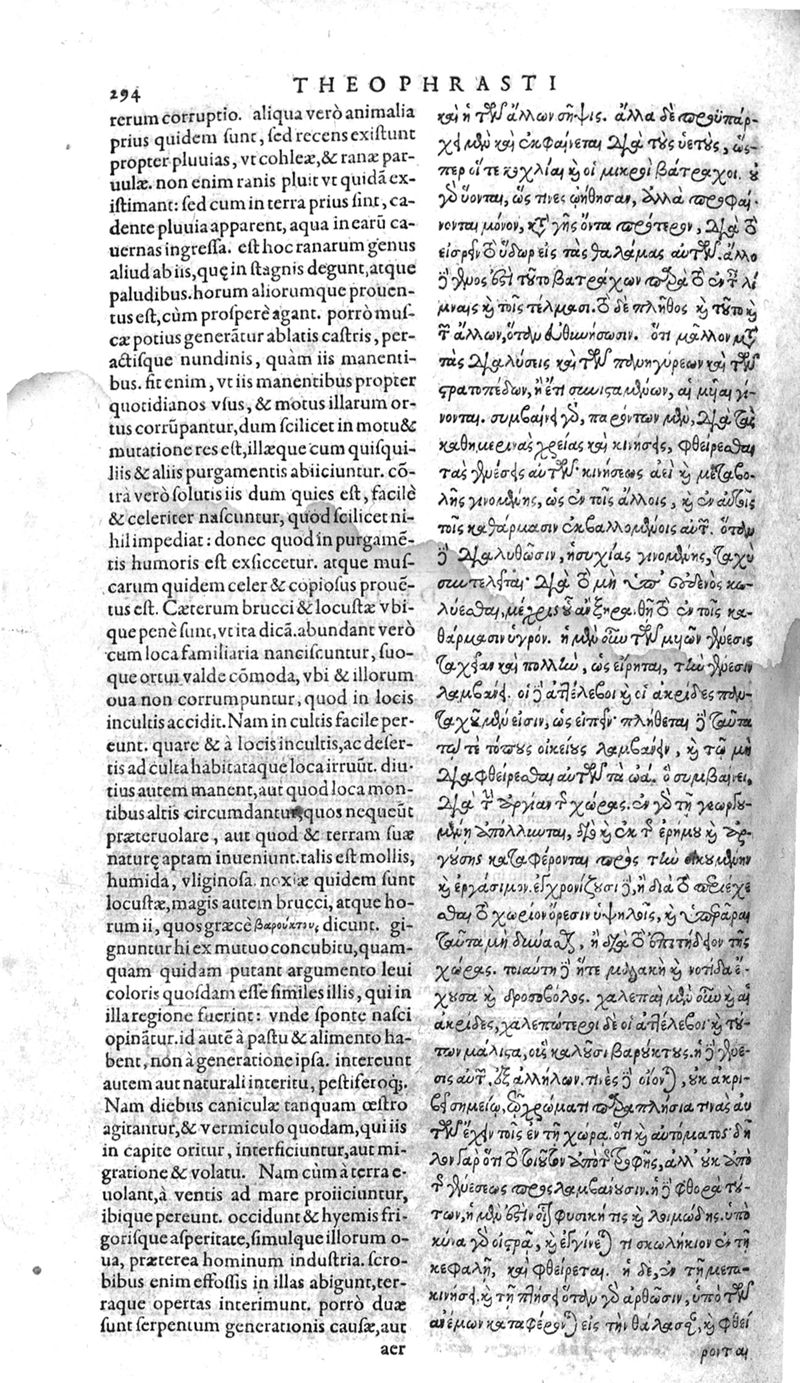 294
THEOPHRASTI
rerum corruptio. aliqua verò animalia
prius quidem sunt, sed recens existunt
propter pluuias, vt cohleæ,& ranæ par-
uulæ. non enim ranis pluit vt quidã ex-
istimant: sed cum in terra prius sint, ca-
dente pluuia apparent, aqua in earũ ca-
uernas ingressa. est hoc ranarum genus
aliud ab iis, quę in stagnis degunt, atque
paludibus. horum aliorumque prouen-
tus est, cùm prosperè agant. porrò mus-
cæ potius generãtur ablatis castris, per-
actisque nundinis, quàm iis manenti-
bus. fit enim, vt iis manentibus propter
quotidianos vsus, & motus illarum or-
tus corrũpantur, dum scilicet in motu&
mutatione res est, illæque cum quisqui-
liis & aliis purgamentis abiiciuntur. cõ-
trà verò solutis iis dum quies est, facilè
& celeriter nascuntur, quod scilicet ni-
hil impediat: donec quod in purgamẽ-
tis humoris est exsiccetur. atque mus-
carum quidem celer & copiosus prouẽ-
tus est. Cæterum brucci & locustæ vbi-
que penè sunt, vt ita dicã. abundant verò
cum loca familiaria nanciscuntur, suo-
que ortui valde cõmoda, vbi & illorum
oua non corrumpuntur, quod in locis
incultis accidit. Nam in cultis facile per-
eunt. quare & à locis incultis, ac deser-
tis ad culta habitataque loca irruũt. diu-
tius autem manent, aut quod loca mon-
tibus altis circumdantur, quos nequeũt
præteruolare, aut quod & terram suæ
naturę aptam inueniunt. talis est mollis,
humida, vliginosa. noxiæ quidem sunt
locustæ, magis autem brucci, atque ho-
rum ii, quos græcè βαρούκτους dicunt. gi-
gnuntur hi ex mutuo concubitu, quam-
quam quidam putant argumento leui
coloris quosdam esse similes illis, qui in
illa regione fuerint: vnde sponte nasci
opinãtur. id autẽ à pastu & alimento ha-
bent, nõ à generatione ipsa. intereunt
autem aut naturali interitu, pestiferoq;.
Nam diebus caniculæ tanquam œstro
agitantur, & vermiculo quodam, qui iis
in capite oritur, interficiuntur, aut mi-
gratione & volatu. Nam cùm à terra e-
uolant, à ventis ad mare proiiciuntur,
ibique pereunt. occidunt & hyemis fri-
gorisque asperitate, simulque illorum o-
ua, præterea hominum industria. scro-
bibus enim effossis in illas abigunt, ter-
raque opertas interimunt. porrò duæ
sunt serpentum generationis causæ, aut
aer
καὶ ἡ τῶν ἄλλων σῆψις. ἄλλα δὲ προϋπάρ-
χει μὲν καὶ ἐκφαίνεται διὰ τοὺς ὑετοὺς, ὥς-
περ οἵ τε κοχλίαι καὶ οἱ μικροὶ βάτραχοι. οὐ
γὰρ ὕονται, ὥς τινες ᾠήθησαν, ἀλλὰ προφαί-
νονται μόνον, κατὰ γῆς ὄντα πρότερον, διὰ τὸ
εἰσρεῖν τὸ ὕδωρ εἰς τὰς θαλάμας αὐτῶν. ἄλλο
δὲ γένος ἐστὶ τοῦτο βατράχων παρὰ τὸ ἐν ταῖς λί
μναις καὶ τοῖς τέλμασι. τὸ δὲ πλῆθος καὶ τούτο καὶ
τῶν ἄλλων, ὅταν εὐθηνήσωσιν. ὅτι μᾶλλον μετὰ
τὰς διαλύσεις καὶ τῶν πανηγύρεων καὶ τῶν
στρατοπέδων, ἢ ἔτι συνισταμένων, αἱ μυῖαι γί-
νονται. συμβαίνει γὰρ, παρόντων μὲν, διὰ τὰς
καθημερινὰς χρείας καὶ κινήσεις, φθείρεσθαι
τὰς γενέσεις αὐτῶν· κινήσεως ἀεὶ καὶ μεταβο-
λῆς γινομένης, ὡς ἐν τοῖς ἄλλοις, καὶ ἐν αὐτοῖς
τοῖς καθάρμασιν ἐκβαλλομένοις αὐτῶν. ὅταν
δὲ διαλυθῶσιν, ἡσυχίας γινομένης, ταχὺ
συντελεῖται· διὰ τὸ μὴ ὑπ' οὐδενὸς κω-
λύεσθαι, μέχρις οὗ ἀνξηρανθῇ τὸ ἐν τοῖς κα-
θάρμασιν ὑγρόν. ἡ μὲν οὖν τῶν μυιῶν γένεσις
ταχεῖαν καὶ πολλὴν, ὡς εἴρηται, τὴν γένεσιν
λαμβάνει. οἱ δὲ ἀττέλεβοι καὶ οἱ ἀκρίδες παν-
ταχοῦ μὲν εἰσιν, ὡς εἰπεῖν· πλήθεται δὲ ταῦτα
τῷ τε τόπους οἰκείους λαμβάνειν, καὶ τῷ μὴ
διαφθείρεσθαι αὐτῶν τὰ ὠά. ὃ συμβαίνει,
διὰ τὴν ἀργίαν τῆς χώρας. ἐν γὰρ τῇ γεωργου-
μένῃ ἀπόλλυνται, διὸ καὶ ἐκ τῆς ἐρήμου καὶ ἀρ-
γούσης καταφέρονται πρὸς τὴν οἰκουμένην
καὶ ἐργάσιμον. ἐγχρονίζουσι δὲ, ἢ διὰ τὸ περιέχε
σθαι τὸ χωρίον ὄρεσιν ὑψηλοῖς, καὶ ὑπερᾶραι
ταῦτα μὴ δύνασθαι, ἢ διὰ τὸ ἐπιτήδειον τῆς
χώρας. τοιαύτη δὲ ἥτε μαλακὴ καὶ νοτίδα ἔ-
χουσα καὶ δροσοβόλος. χαλεπαὶ μὲν οὖν καὶ αἱ
ἀκρίδες, χαλεπώτεροι δὲ οἱ ἀττέλεβοι· καὶ τού-
των μάλιστα, οὓς καλοῦσι βαρούκτους. ἡ δὲ γένε-
σις αὐτῶν, ἐξ ἀλλήλων. τινὲς δὲ οἴονται, οὐκ ἀκρι-
βεῖ σημείῳ, τῷ χρώματι παραπλήσια τινας αὐ
τῶν ἔχειν τοῖς ἐν τῇ χώρᾳ. ὅτι καὶ αὐτόματος· δῆ
λον γὰρ ὅτι τὸ τοιοῦτον ἀπὸ τῆς τροφῆς, ἀλλ' οὐκ ἀπὸ
τῆς γενέσεως προσλαμβάνουσιν. ἡ δὲ φθορὰ τού-
των, ἡ μὲν ἐστὶν οἷον φυσική τις καὶ λοιμώδης. ὑπὸ
κύνα γὰρ οἰστρᾷ, καὶ ἐγγίνεται τι σκωλήκιον ἐν τῇ
κεφαλῇ, καὶ φθείρεται. ἡ δὲ, ἐν τῇ μετα-
κινήσει καὶ τῇ πτήσει ὅταν γὰρ ἀρθῶσιν, ὑπὸ τῶν
ἀνέμων καταφέρονται εἰς τὴν θάλασσαν, καὶ φθεί
ρονται